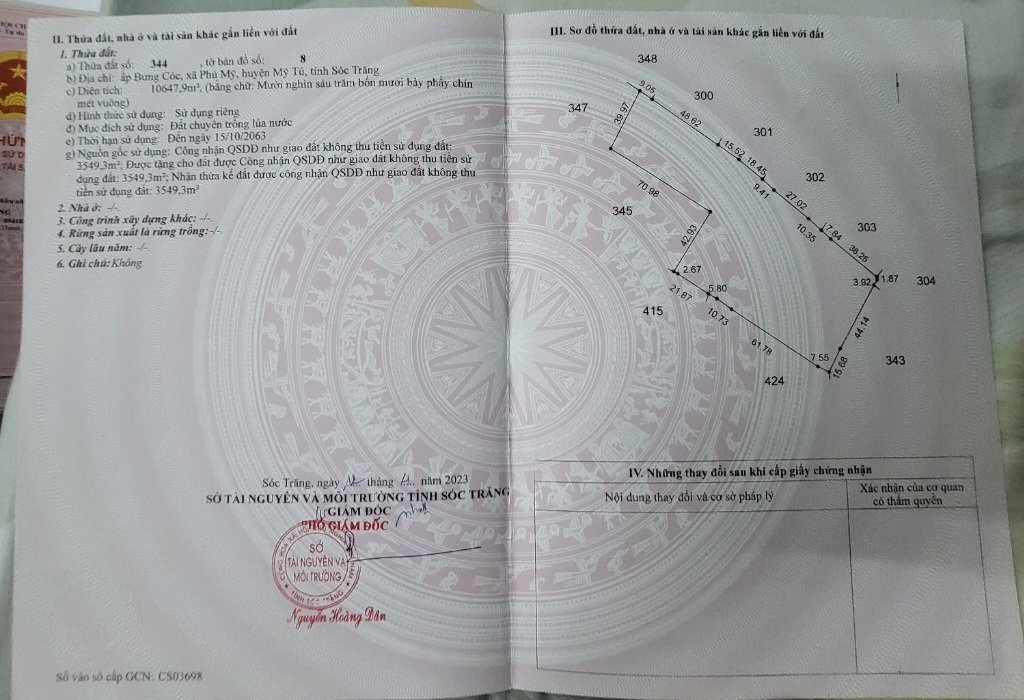 II. Thửa đất, nhà ở và tài sản khác gắn liền với đất
1. Thửa đất:
a) Thửa đất số: 344 , tờ bản đồ số: 8
b) Địa chỉ: ấp Bưng Cóc, xã Phú Mỹ, huyện Mỹ Tú, tỉnh Sóc Trăng
c) Diện tích: 10647,9m², (bằng chữ: Mười nghìn sáu trăm bốn mươi bảy phẩy chín
mét vuông)
d) Hình thức sử dụng: Sử dụng riêng
đ) Mục đích sử dụng: Đất chuyên trồng lúa nước
e) Thời hạn sử dụng: Đến ngày 15/10/2063
g) Nguồn gốc sử dụng: Công nhận QSDĐ như giao đất không thu tiền sử dụng đất:
3549,3m²; Được tặng cho đất được Công nhận QSDĐ như giao đất không thu tiền sử
dụng đất: 3549,3m²; Nhận thừa kế đất được công nhận QSDĐ như giao đất không thu
tiền sử dụng đất: 3549,3m²
2. Nhà ở: -/-
3. Công trình xây dựng khác: -/-
4. Rừng sản xuất là rừng trồng: -/-
5. Cây lâu năm: -/-
6. Ghi chú: Không
Sóc Trăng, ngày tháng năm 2023
SỞ TÀI NGUYÊN VÀ MÔI TRƯỜNG TỈNH SÓC TRĂNG
GIÁM ĐỐC
PHÓ GIÁM ĐỐC
SỞ
TÀI NGUYÊN VÀ
MÔI TRƯỜNG
Nguyễn Hoàng Dân
Số vào sổ cấp GCN: CS03698
III. Sơ đồ thửa đất, nhà ở và tài sản khác gắn liền với đất
348
9.05
300
347
39.97
48.62
301
15.52
18.45
302
9.41
70.98
27.02
345
10.35
7.84
303
42.93
36.26
2.67
3.92
1.87
304
21.87
5.80
415
10.73
44.14
61.78
7.55
15.68
343
424
IV. Những thay đổi sau khi cấp giấy chứng nhận
Nội dung thay đổi và cơ sở pháp lý
Xác nhận của cơ quan
có thẩm quyền